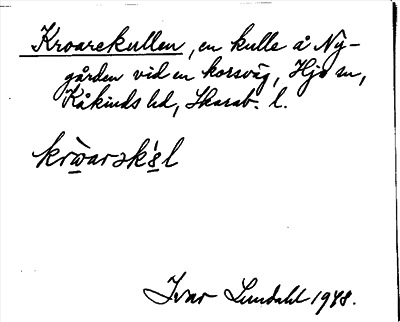 Kroarekullen, en kulle å Ny-
gården vid en korsväg, Hjo sn,
Kåkinds hd, Skarab. l.
krẁarək's̱l
Ivar Lundahl 1948.